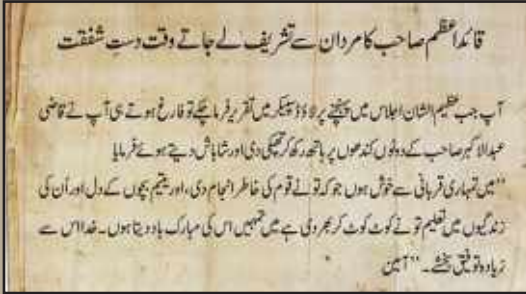 قائد اعظم صاحب کا مردان سے تشریف لے جاتے وقت دستِ شفقت
آپ جب عظیم الشان اجلاس میں پہنچنے پر لاؤڈ سپیکر میں تقریر فرما چکے تو فارغ ہوتے ہی آپ نے قاضی
عبدالاکبر صاحب کے دونوں کندھوں پر ہاتھ رکھ کر تھپکی دی اور شاباش دیتے ہوئے فرمایا
"میں تمہاری قربانی سے خوش ہوں جو کہ تو نے قوم کی خاطر انجام دی، اور یتیم بچوں کے دل اور اُن کی
زندگیوں میں تعلیم تو نے کوٹ کوٹ کر بھر دی ہے میں تمہیں اس کی مبارک باد دیتا ہوں۔ خدا اس سے
زیادہ توفیق بخشے۔" آمین